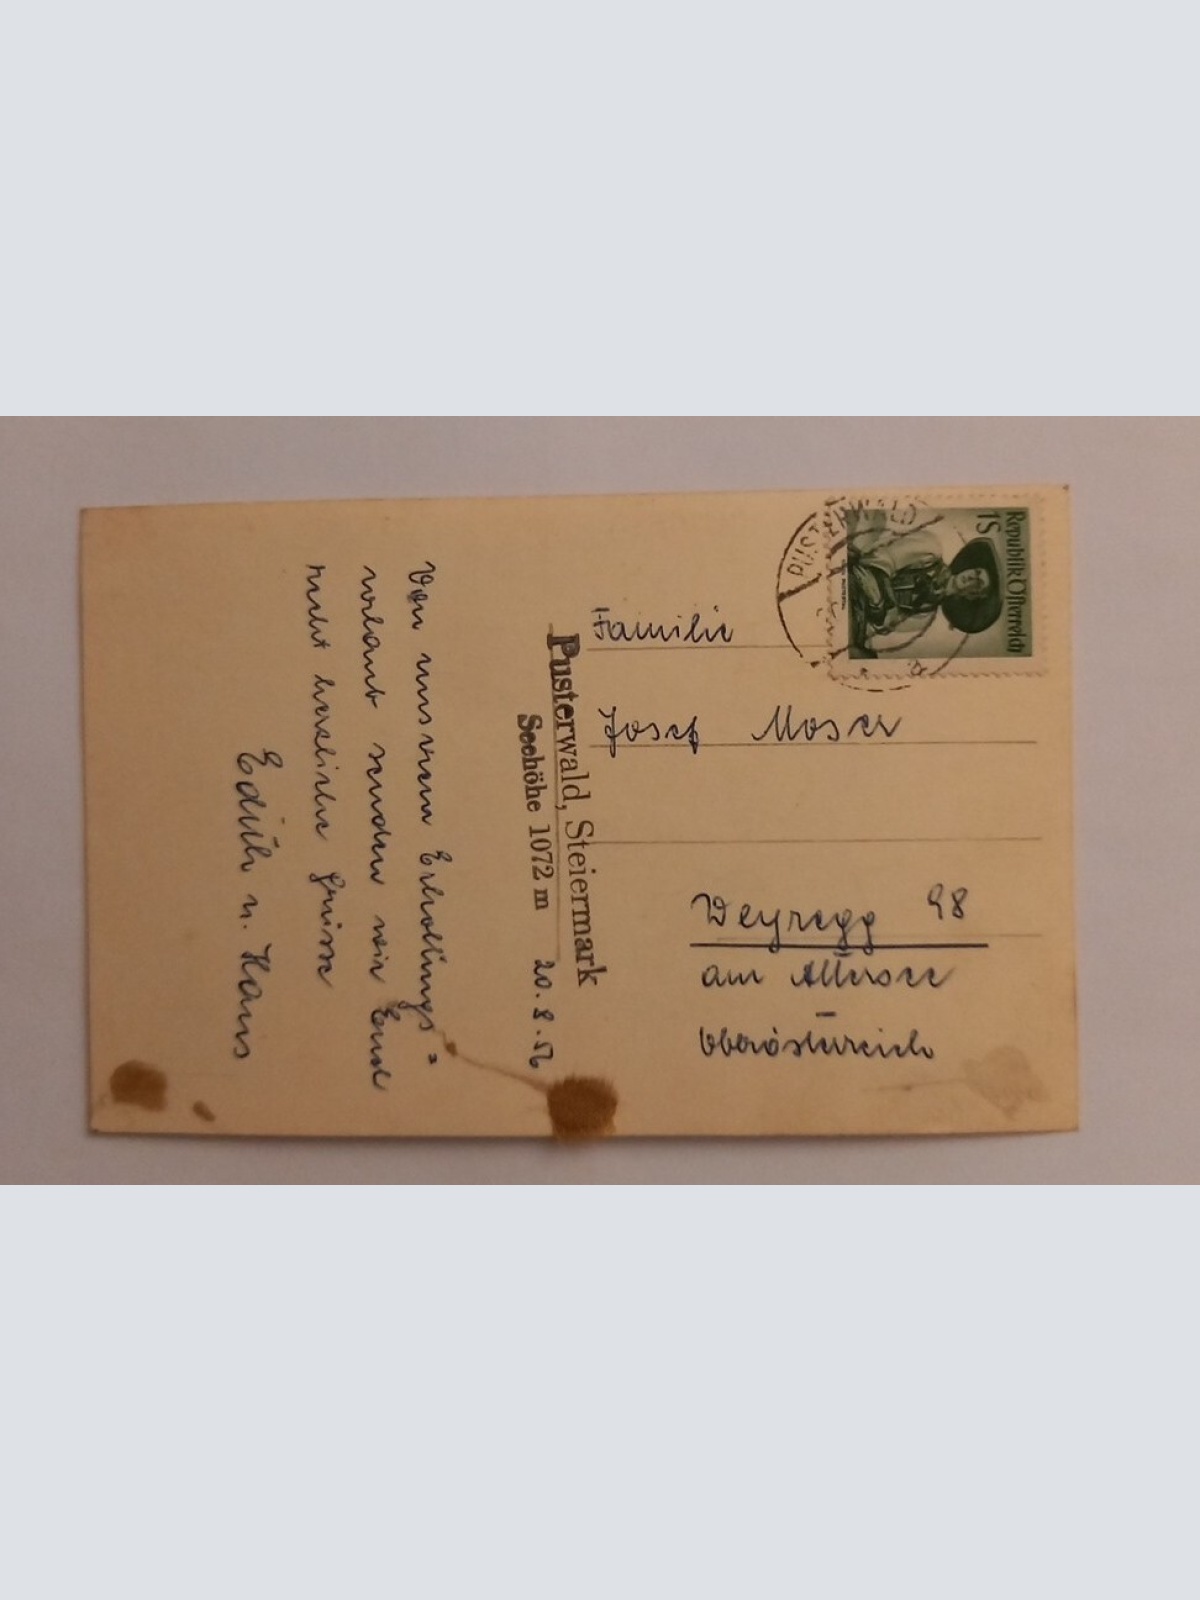 Von unserem Erholungs=
urlaub senden wir Euch
recht herzliche Grüsse
Edith u. Hans
20. 8. 56
Pusterwald, Steiermark
Seehöhe 1072 m
PUSTERWALD
Republik Österreich
1S
Familie
Josef Moser
Weyregg 98
am Attersee
Oberösterreich